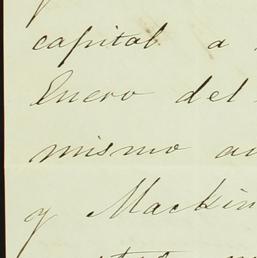 capital a
Enero del
mismo
y Mackin